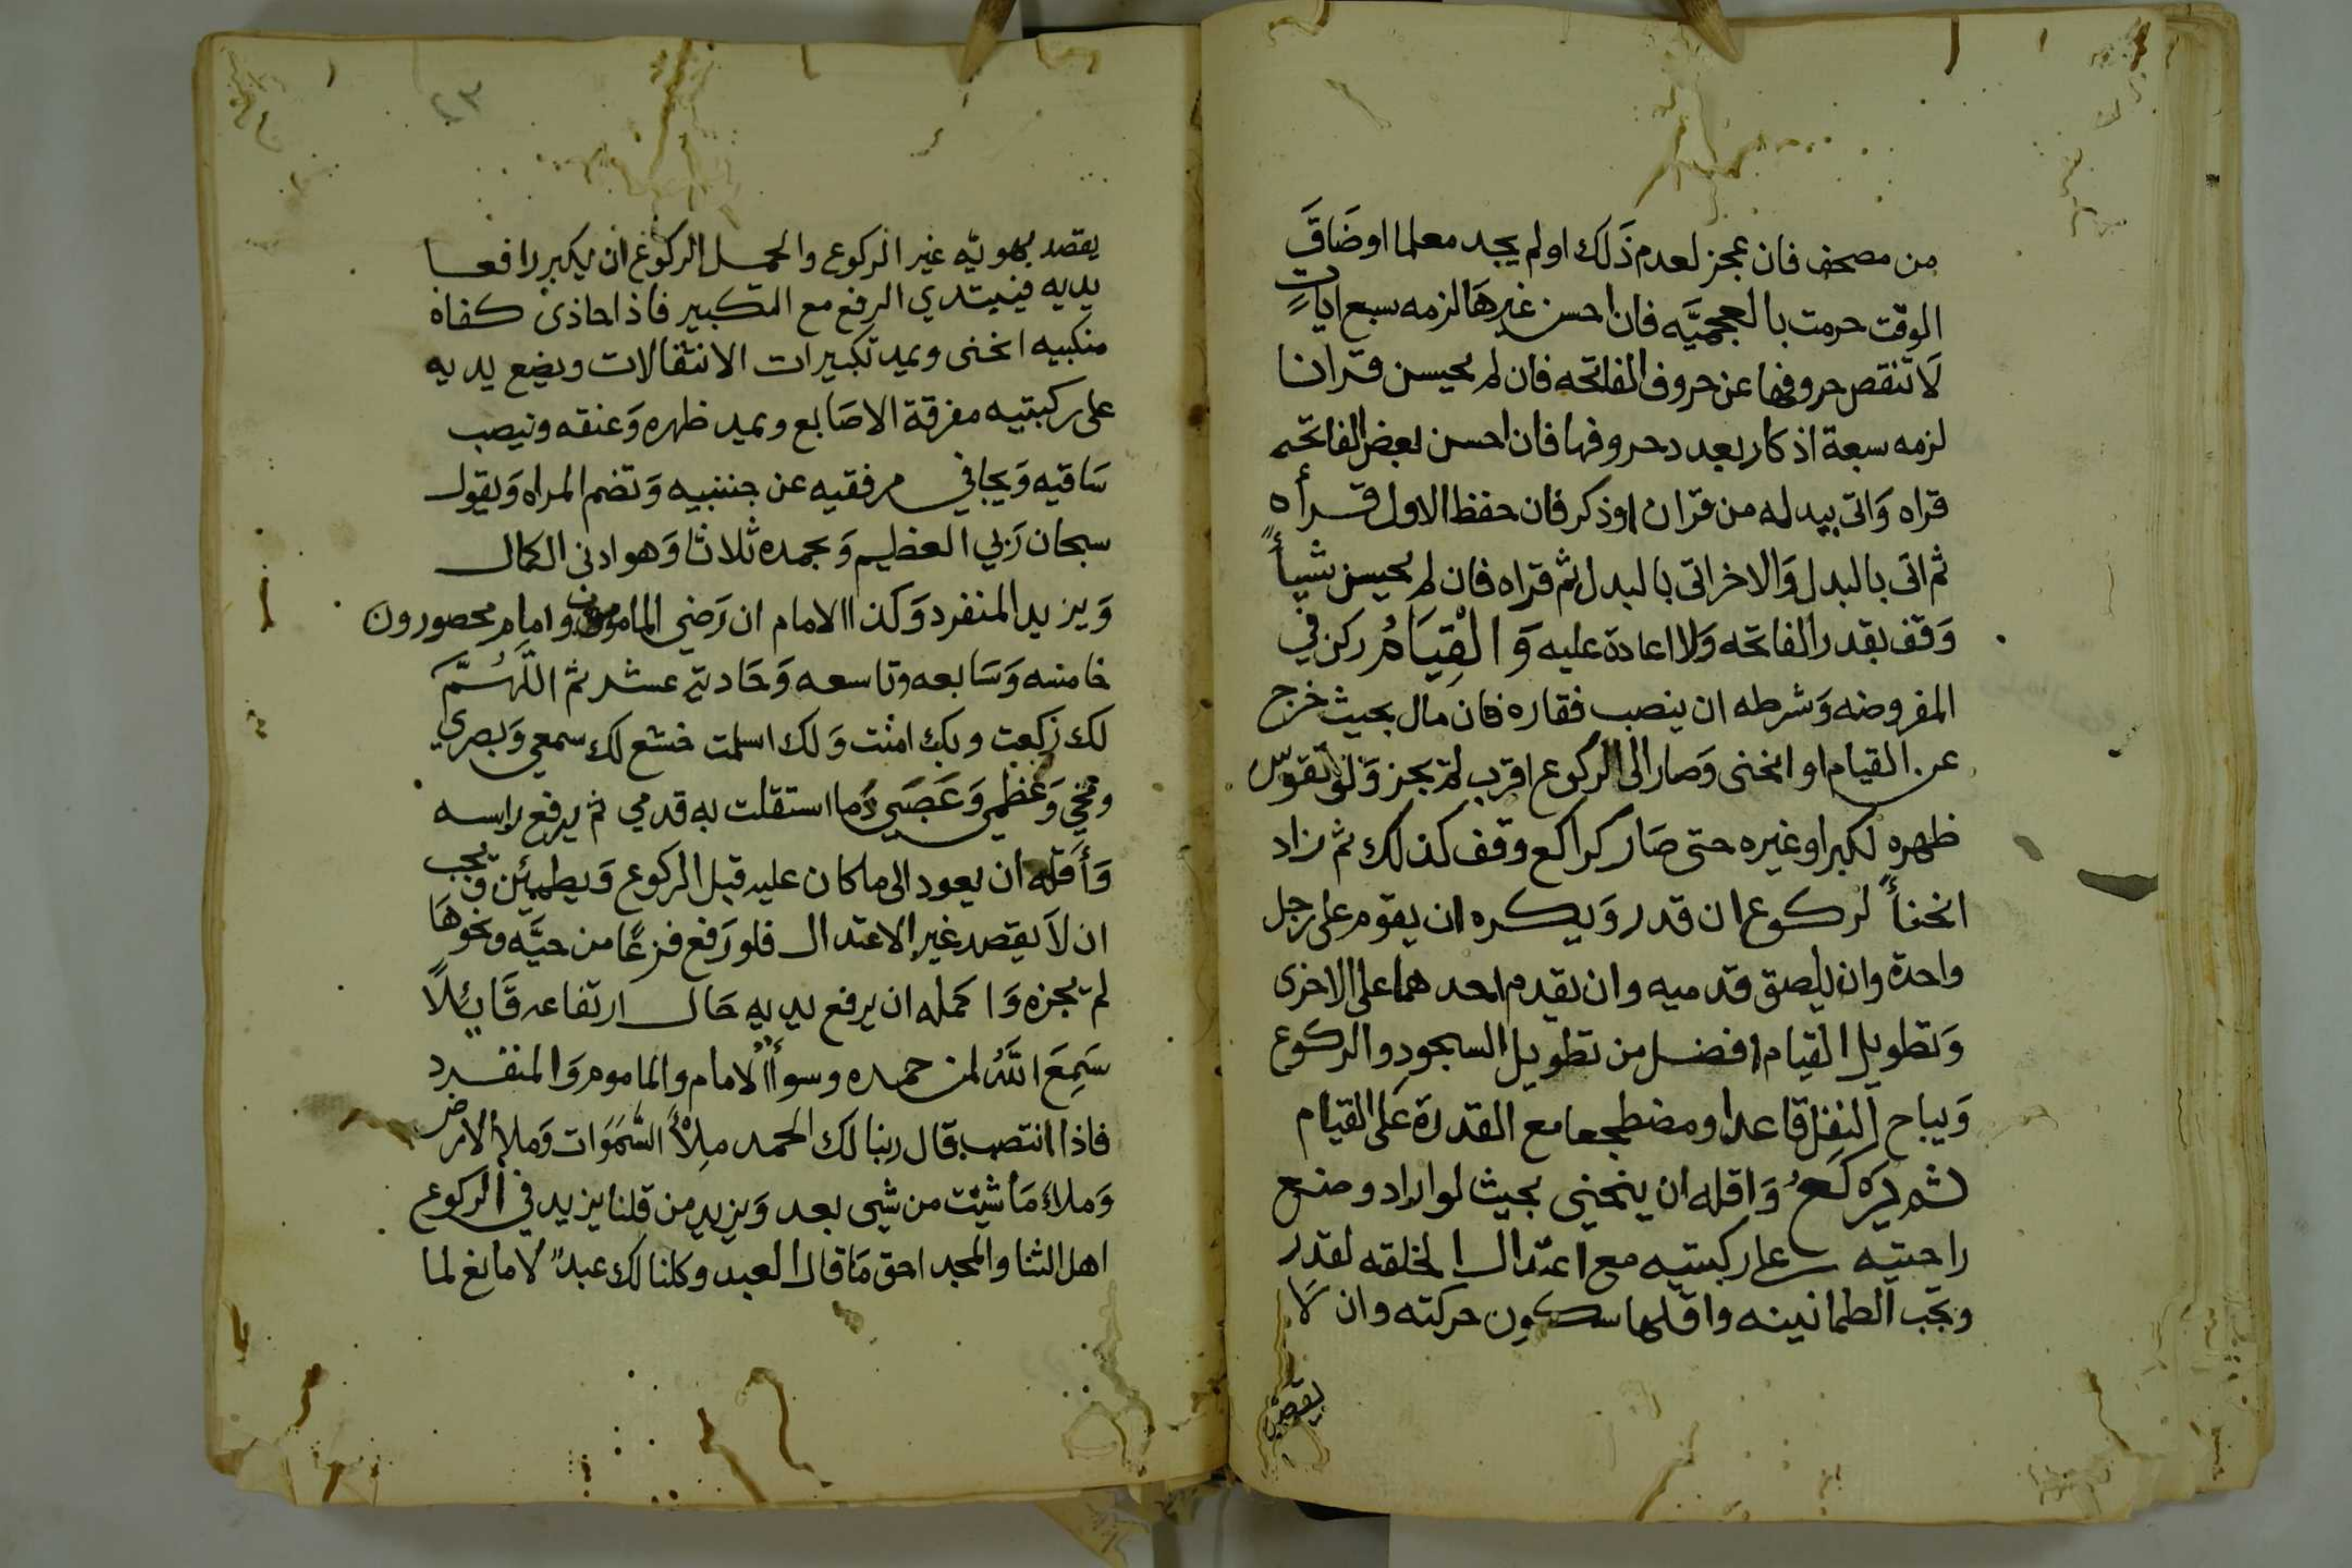 من مصحف فان عجز لعدم ذَلك او لم يجد معلما اوضَاقَ
الوقت حرمت بالعجميَّه فان احسن غيرهَا لزمه سبع اياتٍ
لَا تنقص حروفها عن حروف الفاتحه فان لم يحسن قرانا
لزمه سبعة اذكار بعدد حروفها فان احسن بعض الفاتحه
قراه وَاتى ببدله من قران اوذكر فان حفظ الاول قرأه
ثم اتى بالبدل وَالاخر اتى بالبدل ثم قراه فان لم يحسن شيأً
وَقف بقدر الفاتحه وَلا اعادة عليه وَالْقِيَامُ ركن في
المفروضه وَشرطه ان ينصب فقاره فان مال بحيث خرج
عن القيام او انحنى وَصار الى الركوع اقرب لم يجز وَلو تقوّس
ظهره لكبر اوغيره حتى صَار كراكع وقف كذلك ثم زاد
انحنأً لركوع ان قدر وَيكره ان يقوم على رجل
واحدة وان يلصق قدميه وان يقدم احدهما على الاخرى
وَتطويل القيام افضل من تطويل السجود والركوع
وَيباح النفل قاعدا ومضطجعا مع القدرة عَلى القيام
ثم يَركَعُ وَاقله ان ينحني بحيث لو اراد وضع
راحتيه على ركبتيه مع اعتدال الخلقه لقدر
وتجب الطمانينه واقلها سكون حركته وان لَا
يقصد
٢٣
يقصد بهويّه غير الركوع واكمل الركوع ان يكبر رافعا
يديه فيبتدي الرفع مع التكبير فاذا حاذى كفاه
منكبيه انحنى ويمد تكبيرات الانتقالات ويضع يديه
على ركبتيه مفرقة الاصَابع ويمد ظهره وَعنقه وينصب
سَاقيه وَيجافي مرفقيه عن جنبيه وَتضم المراه وَيقول
سبحان رَبي العظيم وَبحمده ثلاثا وَهو ادنى الكمال
وَيزيد المنفرد وَكذا الامام ان رَضي المامومون وامام محصورون
خامسه وَسَابعه وتاسعه وَحَادية عشر ثم اللَّهُمَّ
لك ركعت وبك امنت وَلك اسلمت خشع لك سمعي وَبصري
ومخي وَعَظمي وَعَصَبي وَما استقلت به قدمي ثم يرفع راسه
وَأقله ان يعود الى ماكان عليه قبل الركوع وَيطمئن ويجب
ان لَا يقصد غير الاعتدال فلو رَفع فزعًا من حيَّه ونحوهَا
لم يجزه وَاكمله ان يرفع يديه حَال ارتفاعه قَائِلاً
سَمِعَ اللَّهُ لمن حمده وسوأ الامام والماموم وَالمنفرد
فاذا انتصب قال ربنا لك الحمد مِلأَ السَّمَوَات وَملأ الارض
وَملأ مَا شيئت من شيى بعد وَيزيد من قلنا يزيد في الركوع
اهل الثنا والمجد احق مَا قال العبد وكلنا لك عبدٌ لا مانع لما